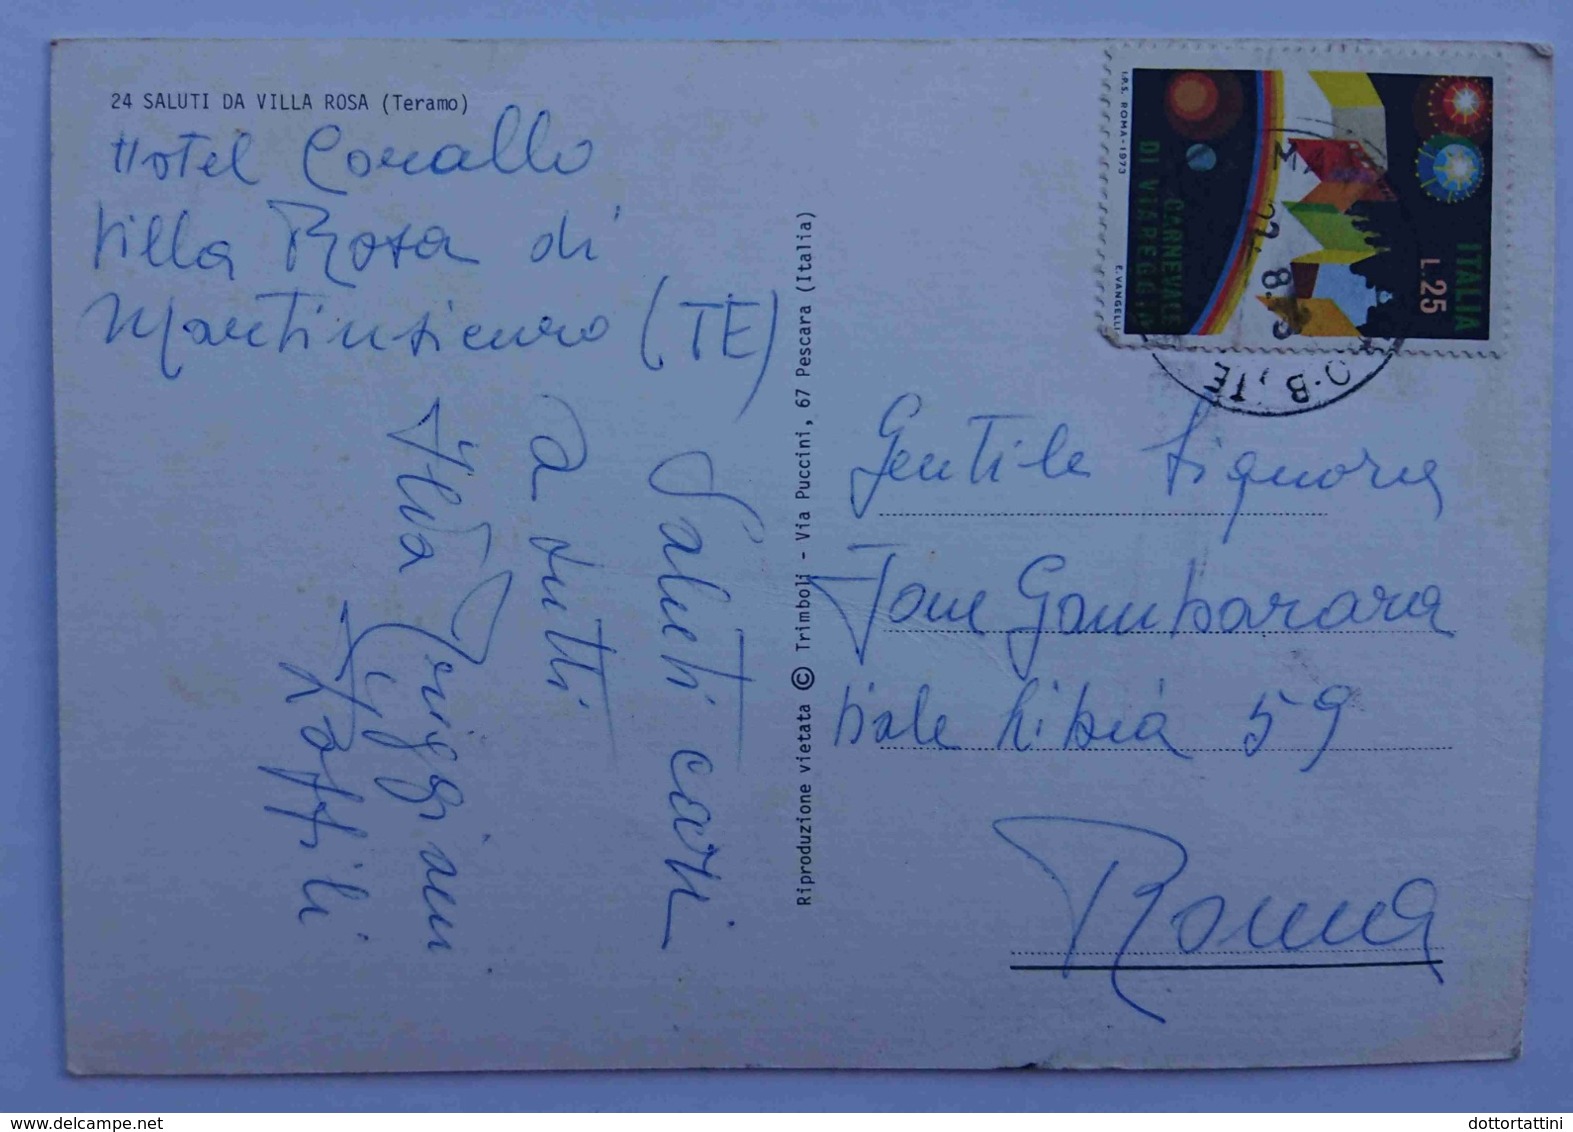 24 SALUTI DA VILLA ROSA (Teramo)
Hotel Corallo
Villa Rosa di
Martinsicuro (TE)
Saluti cari
a tutti
Riproduzione vietata © Trimboli - Via Puccini, 67 Pescara (Italia)
I.P.S. ROMA-1973
CARNEVALE
DI VIAREGGIO
E. VANGELLI
ITALIA
L.25
22. 8.
TE
Gentile Signora
Jone Gambarara
Viale Libia 59
Roma
dottortattini